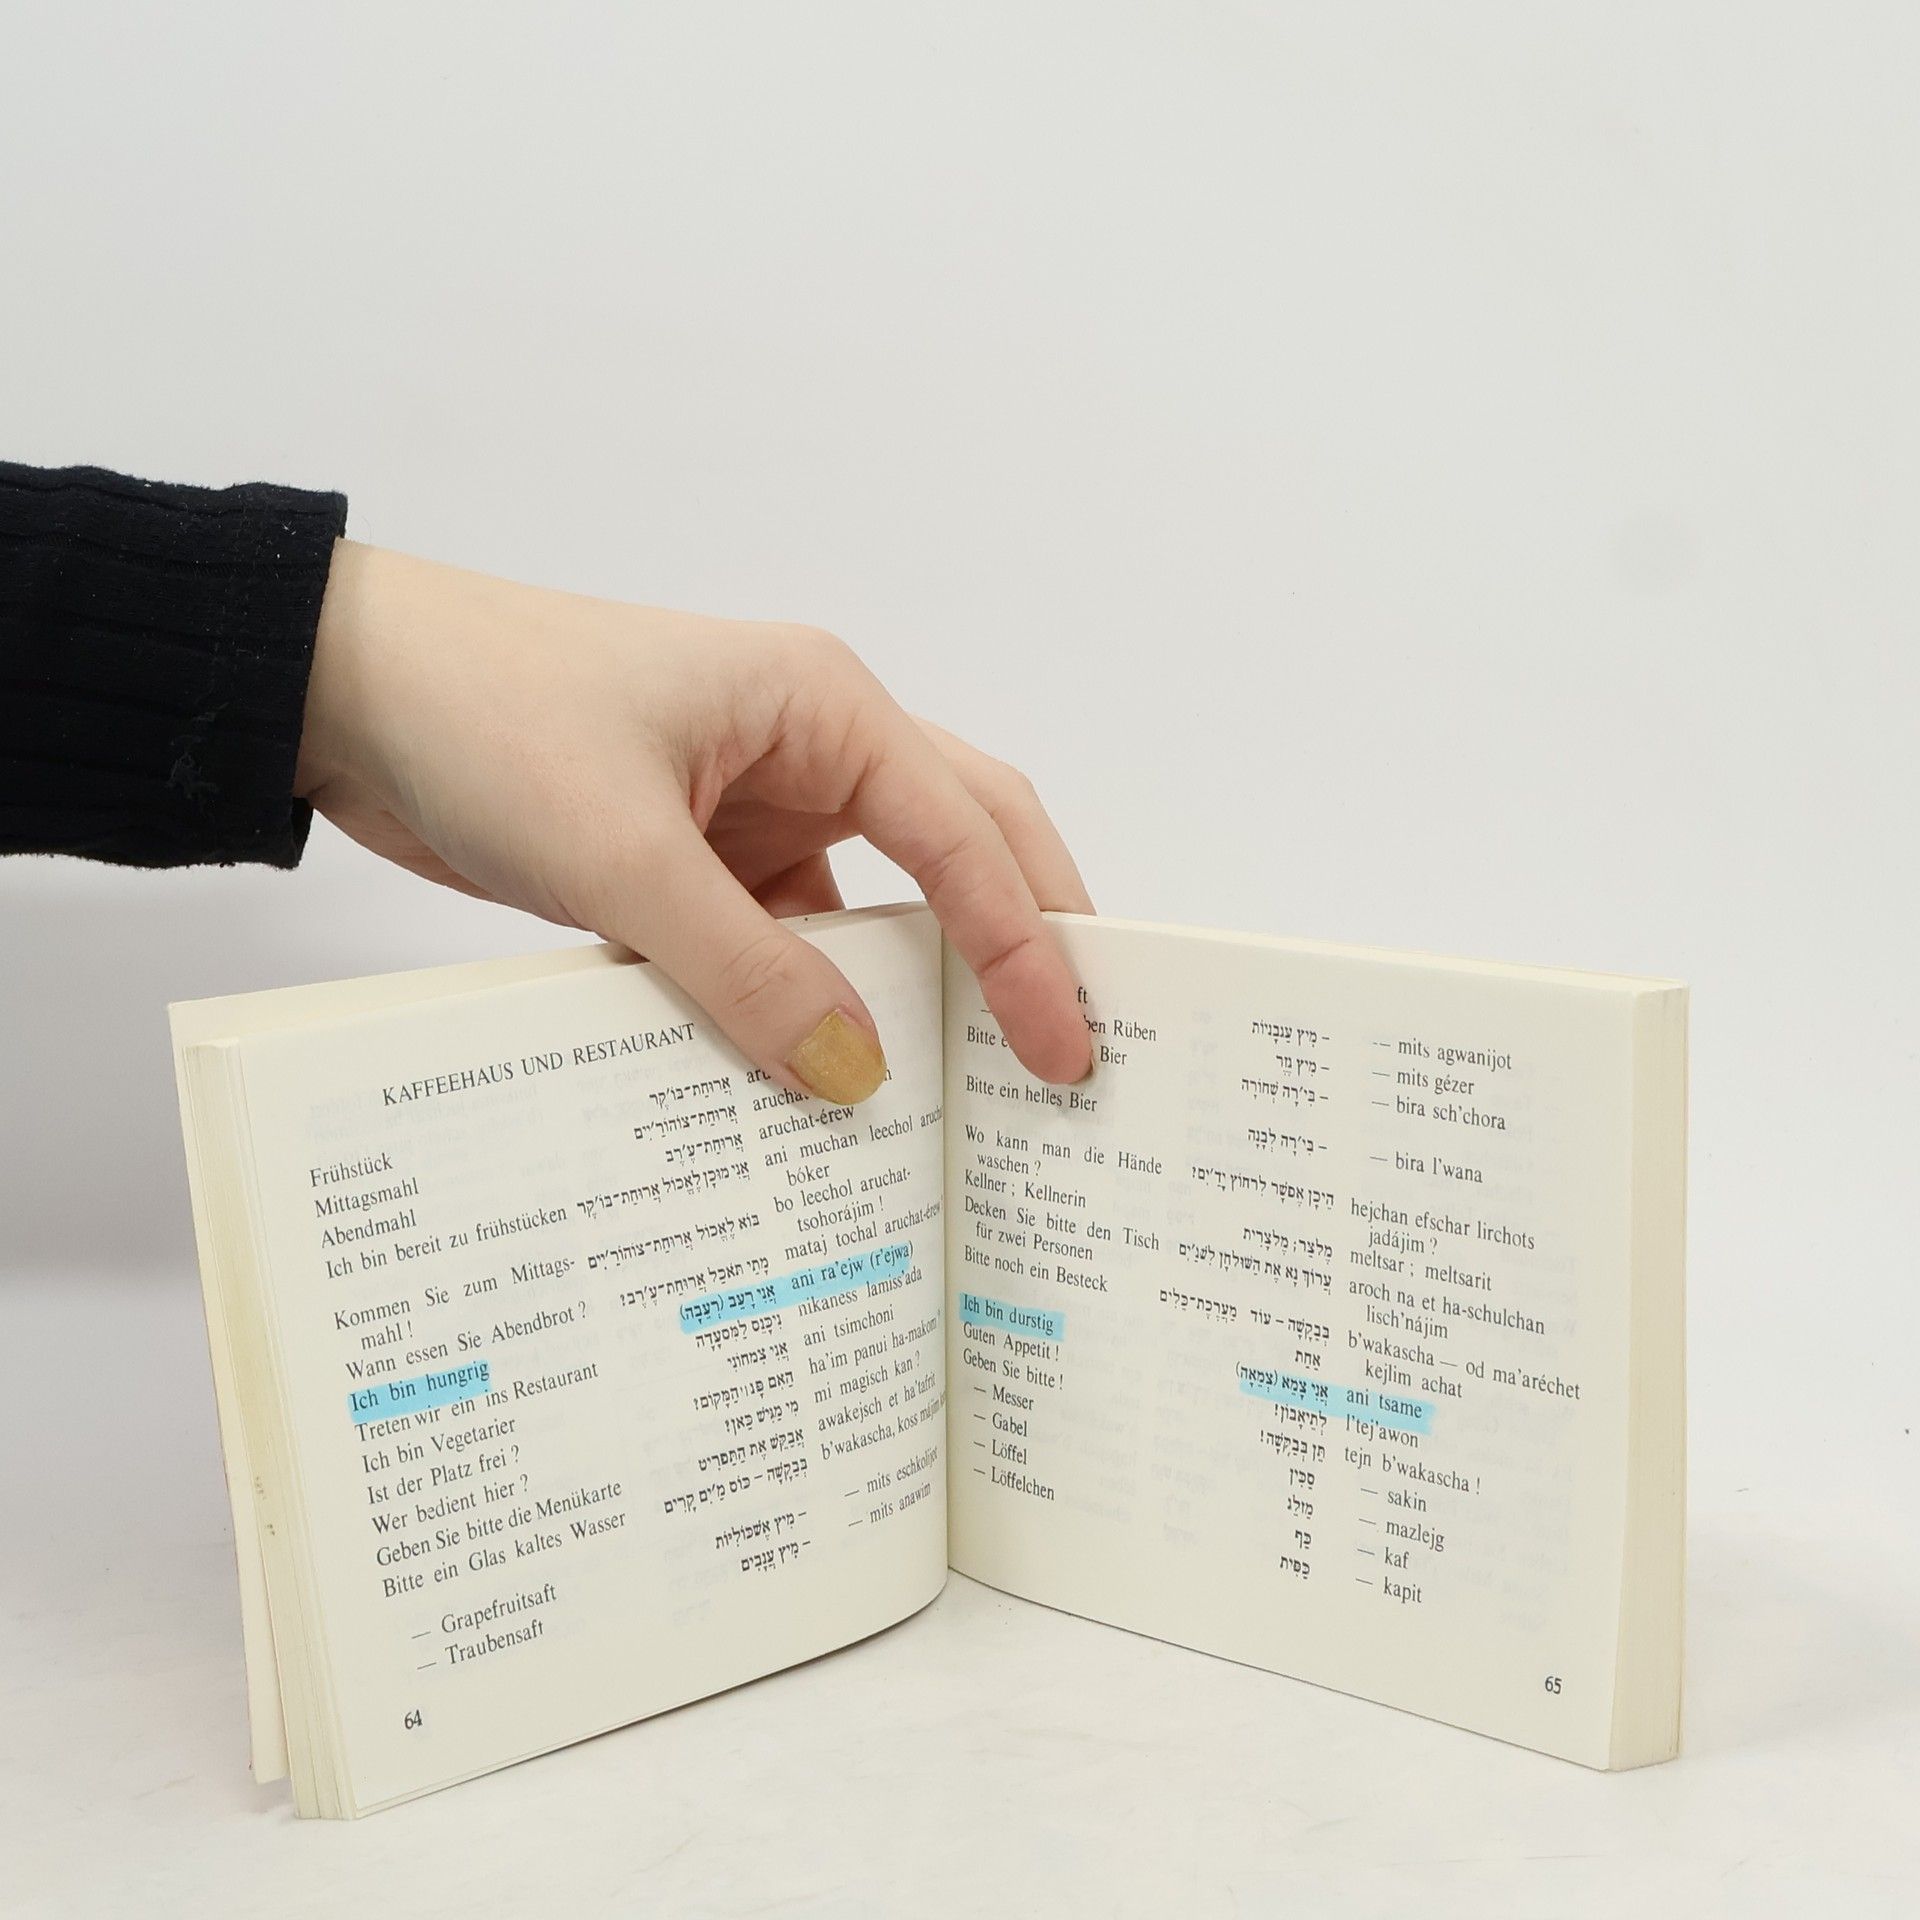 KAFFEEHAUS UND RESTAURANT
Frühstück אֲרוּחַת־בּוֹ׳קֶר
Mittagsmahl אֲרוּחַת־צוֹהוֹרַ׳יִם
Abendmahl אֲרוּחַת־עֶ׳רֶב aruchat-érew
Ich bin bereit zu frühstücken אֲנִי מוּכָן לֶאֱכוֹל אֲרוּחַת־בּוֹ׳קֶר ani muchan leechol
bóker
Kommen Sie zum Mittags- בּוֹא לֶאֱכוֹל אֲרוּחַת־צוֹהוֹרַ׳יִים bo leechol aruchat-
mahl ! tsohorájim !
Wann essen Sie Abendbrot ? מָתַי תֹּאכַל אֲרוּחַת־עֶ׳רֶב? mataj tochal aruchat-érew
Ich bin hungrig אֲנִי רָעֵב (רְעֵבָה) ani ra'ejw (r'ejwa)
Treten wir ein ins Restaurant נִיכָּנֵס לַמִּסְעָדָה nikaness lamiss'ada
Ich bin Vegetarier אֲנִי צִמְחוֹנִי ani tsimchoni
Ist der Platz frei ? הַאִם פָּנוּי הַמָּקוֹם? ha'im panui ha-makom?
Wer bedient hier ? מִי מַגִּישׁ כַּאן? mi magisch kan ?
Geben Sie bitte die Menükarte אֲבַקֵּשׁ אֶת הַתַּפְרִיט awakejsch et ha'tafrit
Bitte ein Glas kaltes Wasser בְּבַקָּשָׁה – כּוֹס מַ׳יִם קָרִים b'wakascha, koss májim
— Grapefruitsaft – מִיץ אֶשְׁכּוֹלִיּוֹת — mits eschkolijot
— Traubensaft – מִיץ עֲנָבִים — mits anawim
64
ft – מִיץ עַגְבָנִיּוֹת — mits agwanijot
Rüben – מִיץ גֶּזֶר — mits gézer
Bitte Bier – בִּי׳רָה שְׁחוֹרָה — bira sch'chora
Bitte ein helles Bier – בִּי׳רָה לְבָנָה — bira l'wana
Wo kann man die Hände הֵיכָן אֶפְשָׁר לִרְחוֹץ יָדַ׳יִים? hejchan efschar lirchots
waschen ? jadájim ?
Kellner ; Kellnerin מֶלְצַר; מֶלְצָרִית meltsar ; meltsarit
Decken Sie bitte den Tisch עֲרוֹךְ נָא אֶת הַשּׁוּלְחָן לִשְׁנַ׳יִם aroch na et ha-schulchan
für zwei Personen lisch'nájim
Bitte noch ein Besteck בְּבַקָּשָׁה – עוֹד מַעֲרֶכֶת־כֵּלִים b'wakascha — od ma'aréchet
אַחַת kejlim achat
Ich bin durstig אֲנִי צָמֵא (צְמֵאָה) ani tsame
Guten Appetit ! לְתֵיאָבוֹן! l'tej'awon
Geben Sie bitte ! תֵּן בְּבַקָּשָׁה! tejn b'wakascha !
— Messer סַכִּין — sakin
— Gabel מַזְלֵג — mazlejg
— Löffel כַּף — kaf
— Löffelchen כַּפִּית — kapit
65